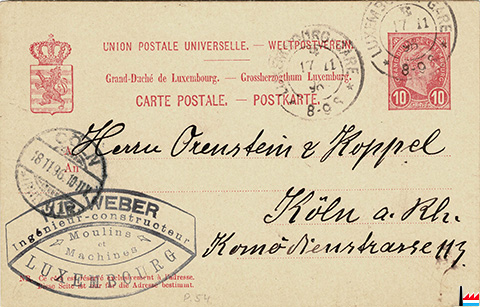 UNION POSTALE UNIVERSELLE. — WELTPOSTVEREIN.
Grand-Duché de Luxembourg. — Grossherzogthum Luxemburg.
CARTE POSTALE. — POSTKARTE.
LUXEMBOURG GARE
17 11
95
8-9 S
LUXEMBOURG GARE
17 11
8-9 S
10 10
A
An
Herrn Orenstein & Koppel
Köln a. Rh.
Komödienstrasse 113
18 11
WEBER
Ingénieur-constructeur
Moulins
et
Machines
LUXEMBOURG
NB. Ce côté est réservé exclusivement à l'adresse.
Diese Seite ist nur für die Adresse bestimmt.
P.54